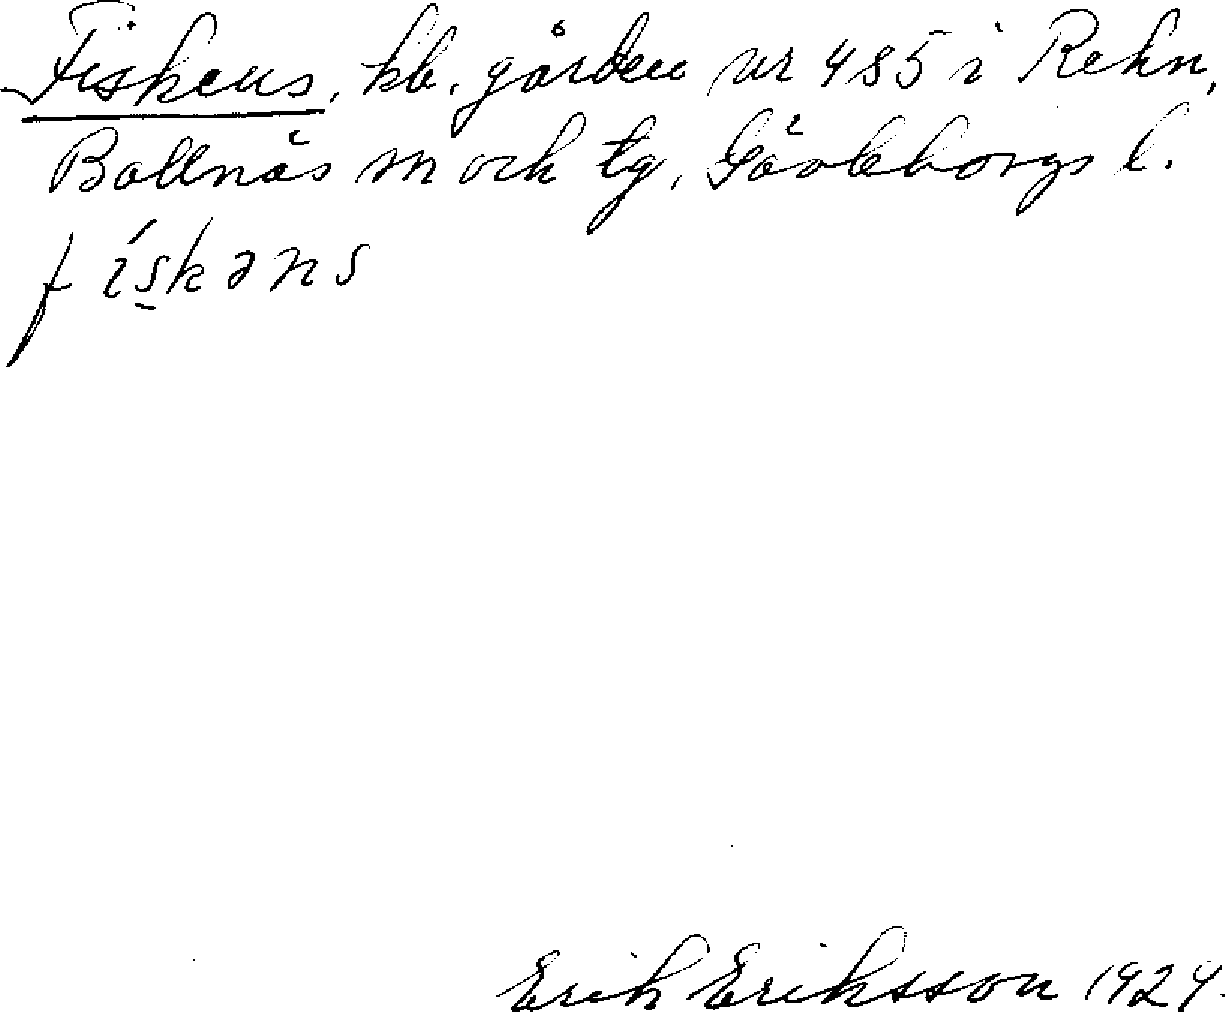 Fiskens, kb. gården nr 485 i Rehn,
Bollnäs sn och tg, Gävleborgs l.
fískəns
Erik Eriksson 1924.